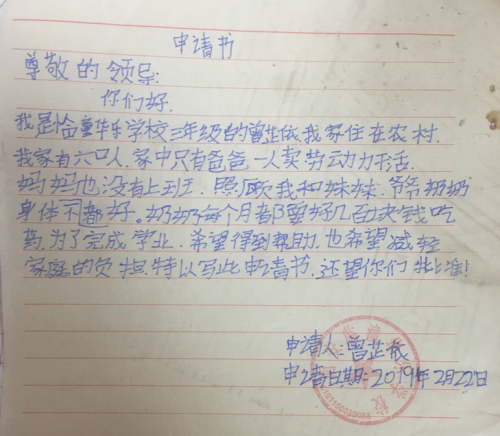 申请书
尊敬的领导:
你们好.
我是怡童毕乐学校三年级的曾芷依.我家住在农村.
我家有六口人.家中只有爸爸一人卖劳动力干活.
妈妈也没有上班.照顾我和妹妹.爷爷奶奶
身体不都好。奶奶每个月都要好几百块钱吃
药.为了完成学业.希望得到帮助.也希望减轻
家庭的负担.特以写此申请书.还望你们批准!
申请人:曾芷依
申请日期:2019年2月22日